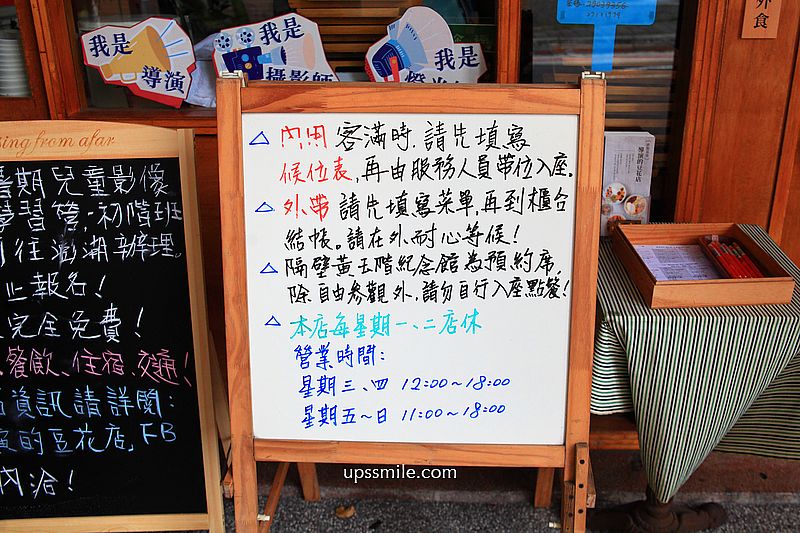 我是
導演
我是
攝影師
我是
外食
△ 內用 客滿時,請先填寫
候位表,再由服務人員帶位入座。
△ 外帶 請先填寫菜單,再到櫃台
結帳。請在外耐心等候!
△ 隔壁黃玉階紀念館為預約席,
除自由參觀外,請勿自行入座點餐!
△ 本店每星期一、二店休
營業時間:
星期三、四 12:00~18:00
星期五~日 11:00~18:00
upssmile.com
from afar
暑期兒童影像
學習營,初階班
前往澎湖辦理。
止報名!
完全免費!
餐飲、住宿、交通!
資訊請詳閱:
的豆花店,FB
內洽!
導演的豆花店